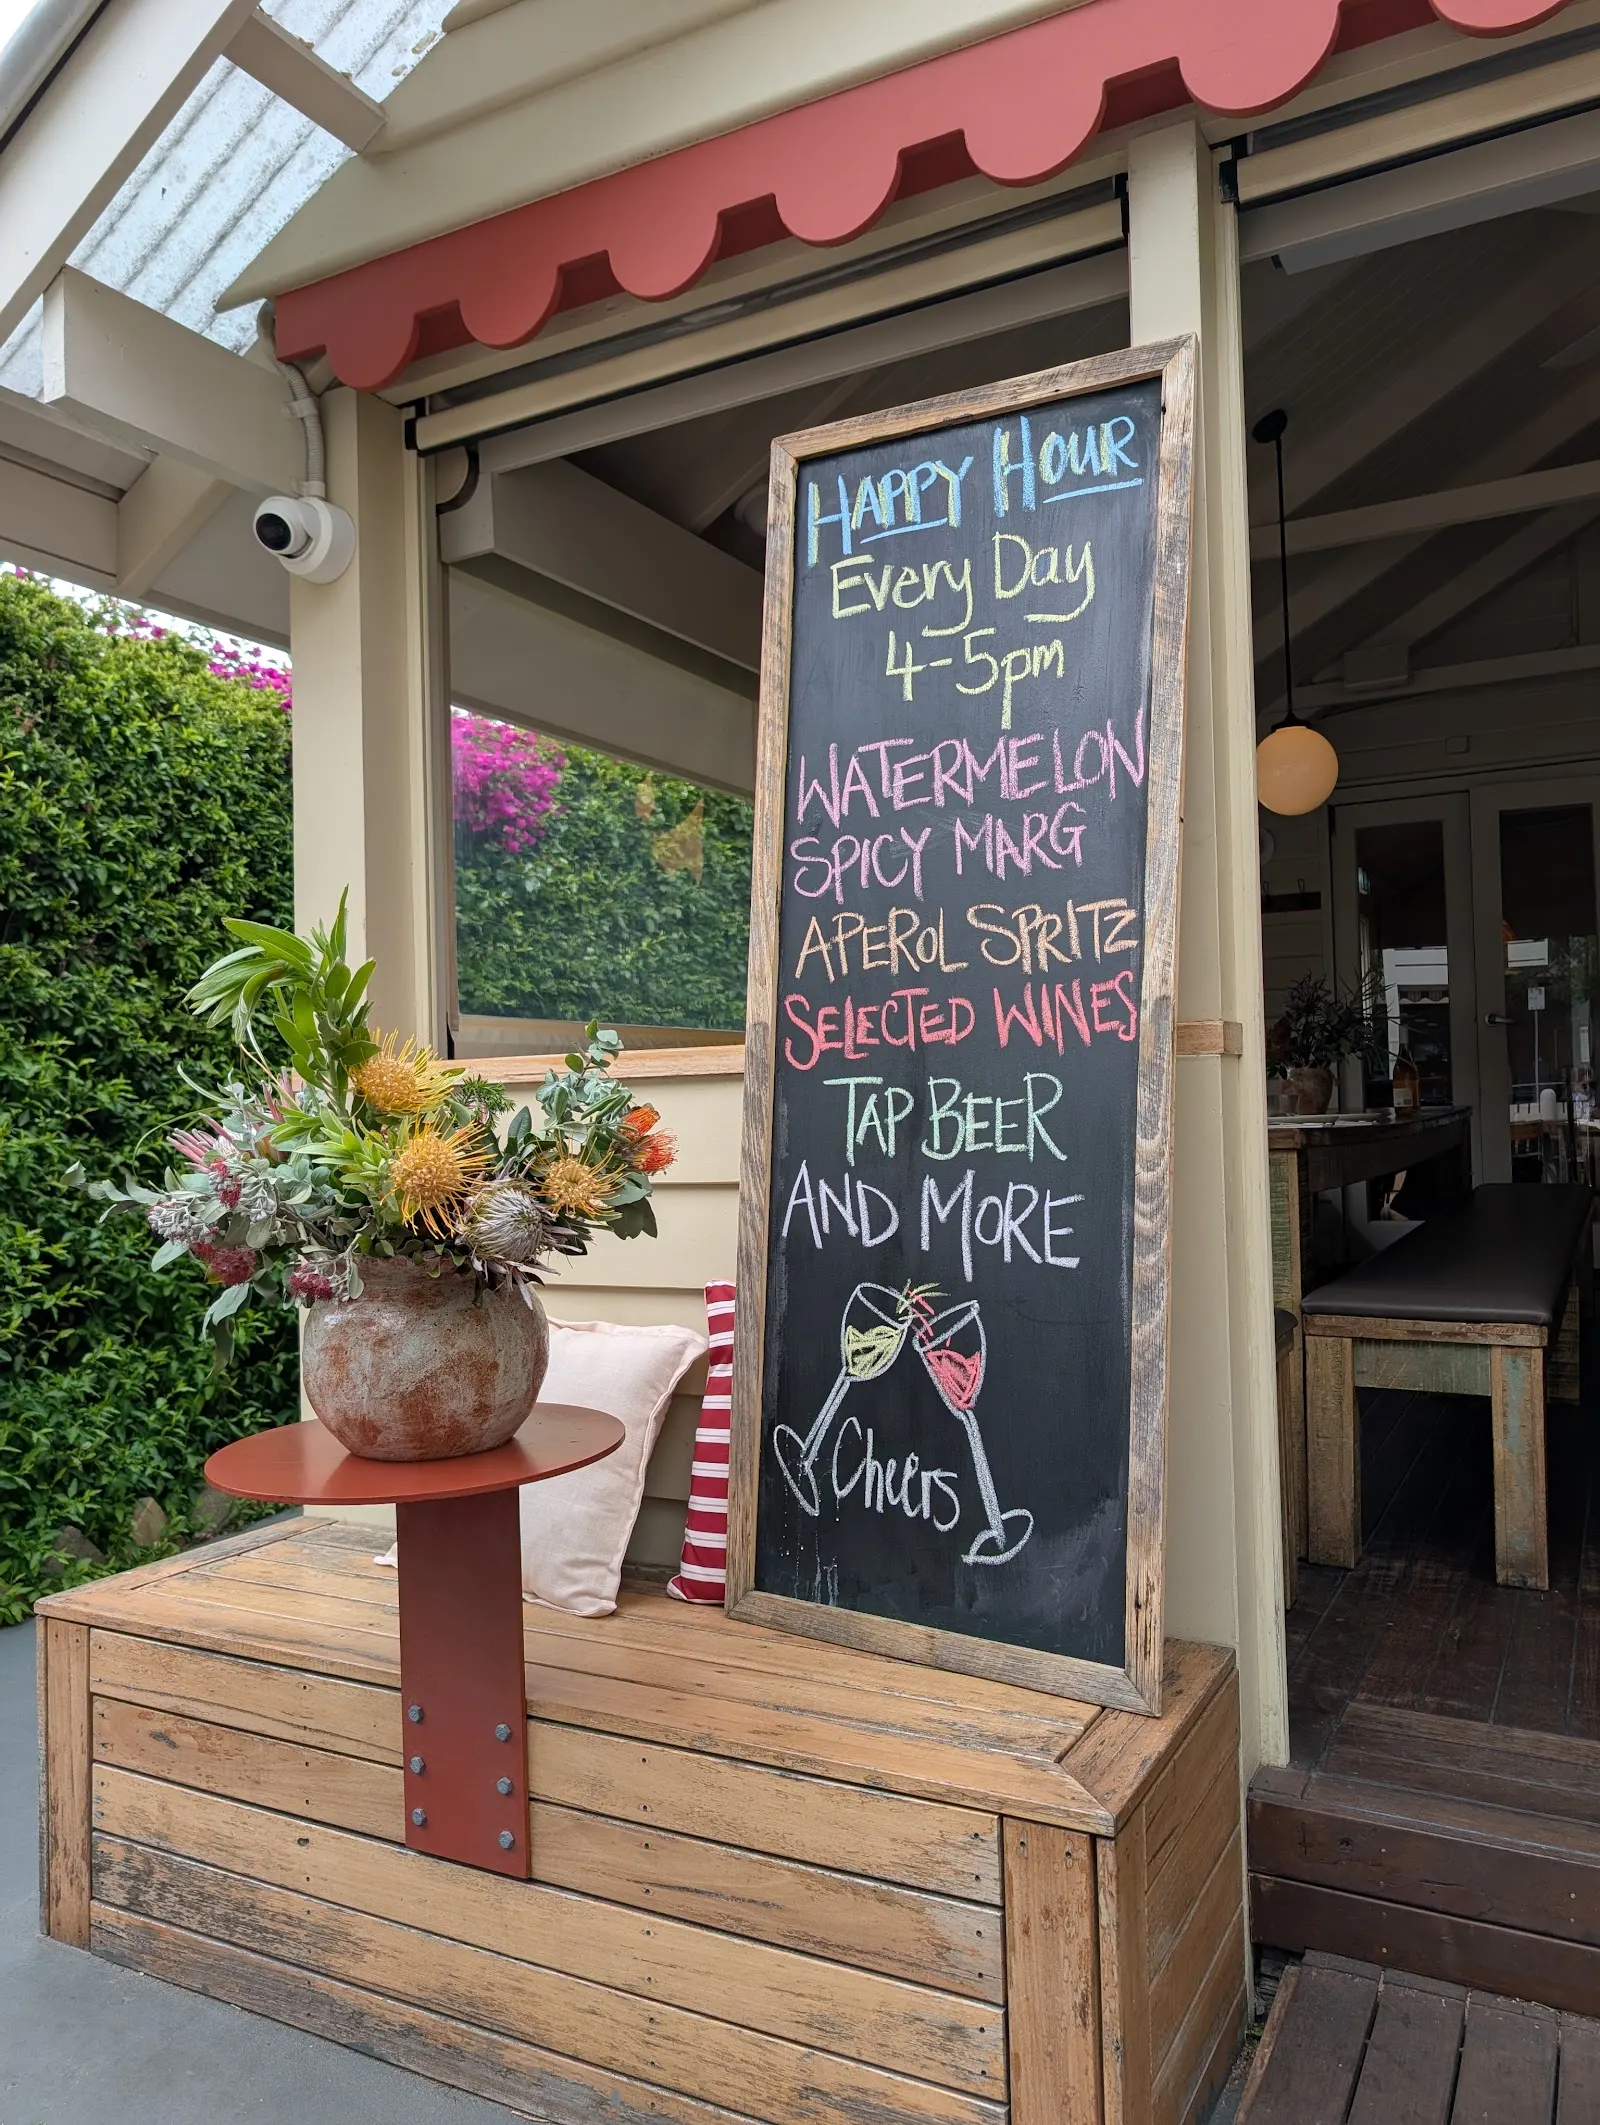 HAPPY HOUR
Every Day
4-5pm
WATERMELON
SPICY MARG
APEROL SPRITZ
SELECTED WINES
TAP BEER
AND MORE
Cheers